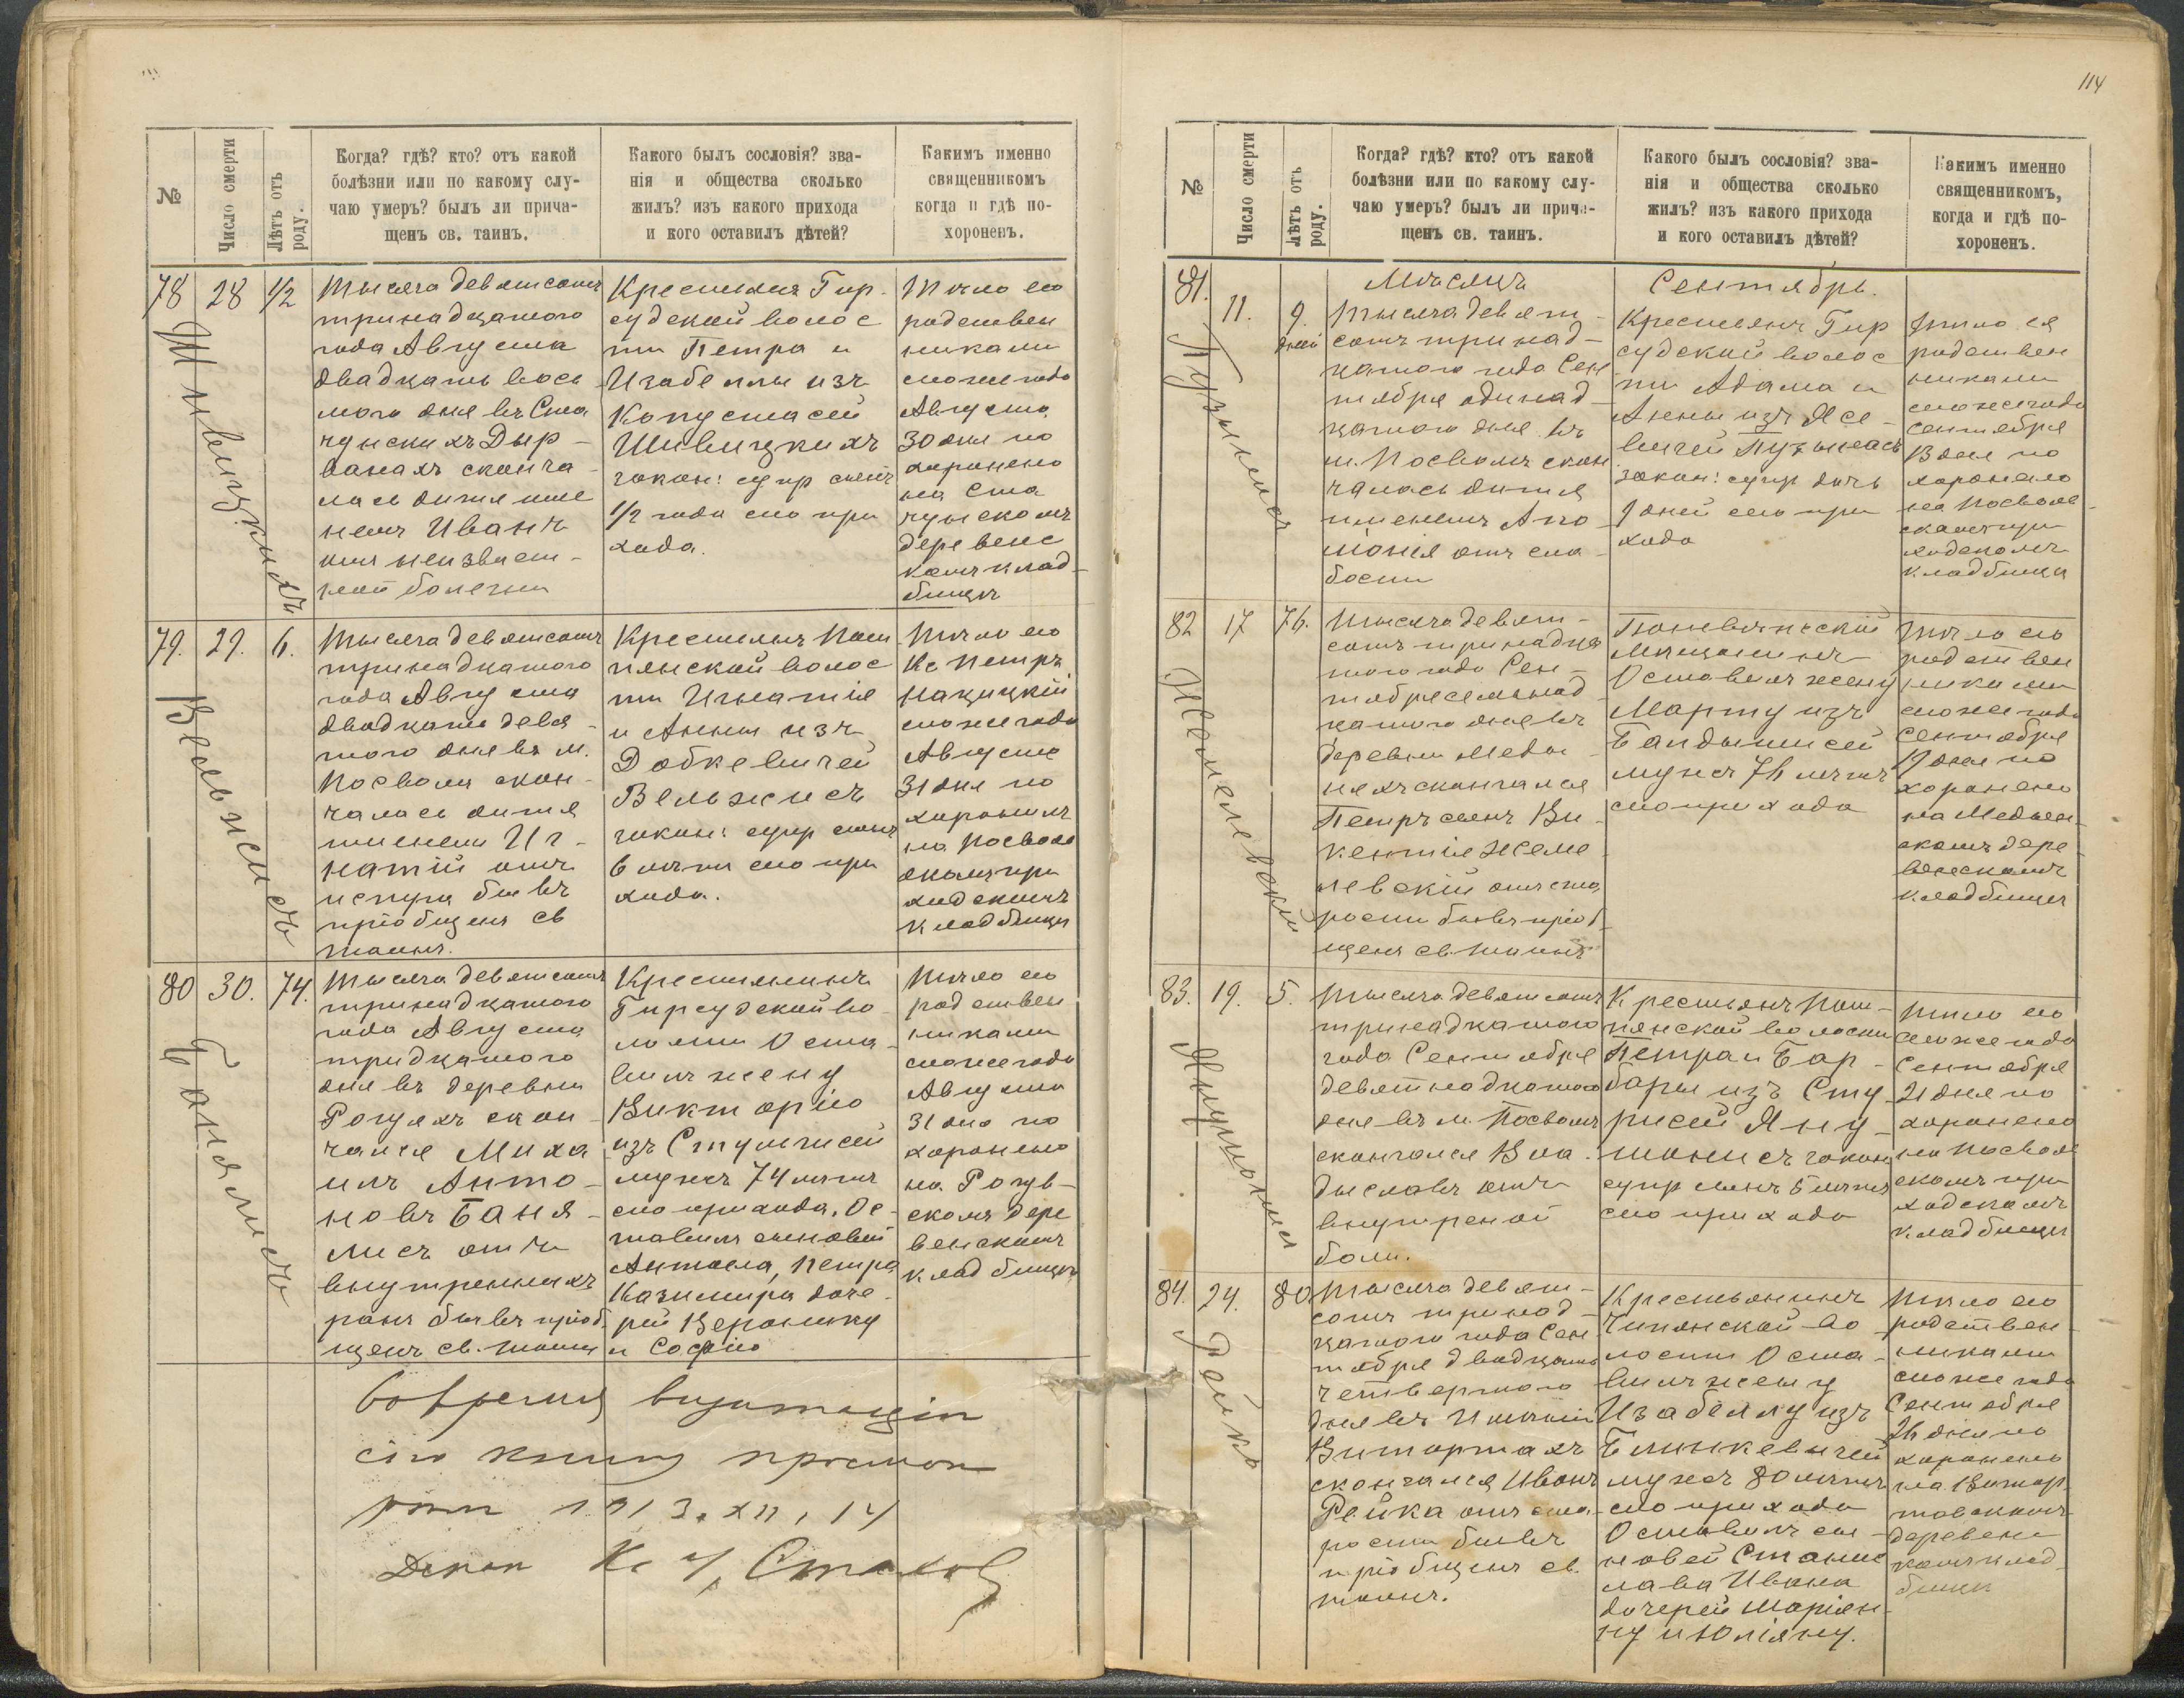 114
№
Число смерти
Лѣтъ отъ роду.
Когда? гдѣ? кто? отъ какой
болѣзни или по какому слу-
чаю умеръ? былъ ли прича-
щенъ св. таинъ.
Какого былъ сословія? зва-
нія и общества сколько
жилъ? изъ какого прихода
и кого оставилъ дѣтей?
Какимъ именно
священникомъ
когда и гдѣ по-
хороненъ.
78
28
1/2
Шивицкихъ
Тысяча девятсотъ
тринадцатого
года Августа
двадцать вось
мого дня въ Ста
чунскихъ Дыр-
ванахъ сконча-
лась дитя име
немъ Иванъ
отъ неизвѣст-
ной болезни
Крестьянъ Гир-
судской волос
ти Петра и
Изабеллы изъ
Копустасей
Шивицкихъ
закон: супр сынъ
1/2 года сто при
хода.
Тѣло его
родствен
никами
стоже года
Августа
30 дня по
хоронено
на Ста
чунскомъ
деревенс
комъ клад-
бищѣ
79.
29.
6.
Вельжисъ
Тысяча девятсотъ
тринадцатого
года Августа
двадцать девя-
того дня въ м.
Посволя скон-
чалась дитя
именем Иг-
натій отъ
испуга бывъ
пріобщенъ св
таинъ.
Крестьянъ Пот
пянской волос
ти Игнатія
и Анны изъ
Добкевичей
Вельжисъ
закон: супр сынъ
6 лѣтъ сто при
хода.
Тѣло его
Кс Петръ
стоже года
Августа
31 дня по
хоронилъ
на Посволь
скомъ при
ходскомъ
кладбищѣ
80
30.
74.
Банялисъ
Тысяча девятсотъ
тринадцатого
года Августа
тридцатого
дня въ деревни
скон-
чался Миха
илъ Анто-
новъ Баня-
лисъ отъ
внутреннихъ
ранъ бывъ пріоб
щенъ св. таинъ
Крестьянинъ
Гирсудской во-
лости Оста-
вилъ жену
Викторію
изъ Стульгисей
мужъ 74 лѣтъ
сто прихода. Ос-
тавилъ сыновей
Антона, Петра
Казимира доче-
рей Веронику
и Софію
Тѣло его
родствен
никами
стоже года
Августа
31 дня по
хоронено
на
скомъ дере
венскомъ
кладбищѣ
Во время визитаціи
сію книгу просмот
рѣлъ 1913. XII, 14
Декан Кс
№
Число смерти
Лѣтъ отъ роду.
Когда? гдѣ? кто? отъ какой
болѣзни или по какому слу-
чаю умеръ? былъ ли прича-
щенъ св. таинъ.
Какого былъ сословія? зва-
нія и общества сколько
жилъ? изъ какого прихода
и кого оставилъ дѣтей?
Какимъ именно
священникомъ,
когда и гдѣ по-
хороненъ.
Мѣсяцъ
Сентябрь.
81.
11.
9.
дней
Пузынасъ
Тысяча девят-
сотъ тринад-
цатого года Сен
тября одинад-
цатого дня въ
м. Посволь скон
чалась дитя
именемъ Апо-
лонія отъ сла-
бости
Крестьянъ Гир
судской волос
ти Адама и
Анны изъ Ясе-
вичей Пузынасъ
закон: супр дочь
9 дней сего при-
хода
Тѣло ея
родствен
никами
стоже года
сентября
13 дня по
хоронено
на Посволь
скомъ при
ходскомъ
кладбищѣ
82
17
76.
Жемелевскій
Тысяча девят-
сотъ тринадца
того года Сен-
тября семьнад
цатого дня въ
деревни Меды
няхъ скончался
Петръ сынъ Ви-
кентія Жеме-
левскій отъ ста
рости бывъ пріоб
щенъ св. таинъ
Поневѣжскій
Мѣщанинъ
Оставилъ жену
Марту изъ
мужъ 76 лѣтъ
сто прихода
Тѣло его
родствен
никами
стоже года
Сентября
19 дня по
хоронено
на Медын-
скомъ дере
венскомъ
кладбищѣ
83.
19.
5.
Янушонисъ
Тысяча девятсотъ
тринадцатого
года Сентября
девятнадцатого
дня въ м. Посволь
скончался Вла-
дыславъ отъ
внутреной
боли.
Крестьянъ Пот-
пянской волости
Петра и Бар-
бары изъ Сту-
рисей Яну-
шонисъ закон
супр сынъ 5 лѣтъ
сто прихода
Тѣло его
стоже года
Сентября
21 дня по
хоронено
на Посволь
скомъ при
ходскомъ
кладбищѣ
84.
24.
80
Рейка
Тысяча девят-
сотъ тринад-
цатого года Сен
тября двадцать
четвертого
дня въ Имѣніи
Витортахъ
скончался Иванъ
Рейка отъ ста-
рости бывъ
пріобщенъ св.
таинъ.
Крестьянинъ
Чипянской во
лости Оста-
вилъ жену
Изабеллу изъ
Блинкевичей
мужъ 80 лѣтъ
сто прихода
Оставилъ сы-
новей Станис
лава Ивана
дочерей Маріян-
ну и Юліяну.
Тѣло его
родствен-
никами
стоже года
Сентября
26 дня по
хоронено
на Витор
товскомъ
деревенс
комъ клад-
бищѣ